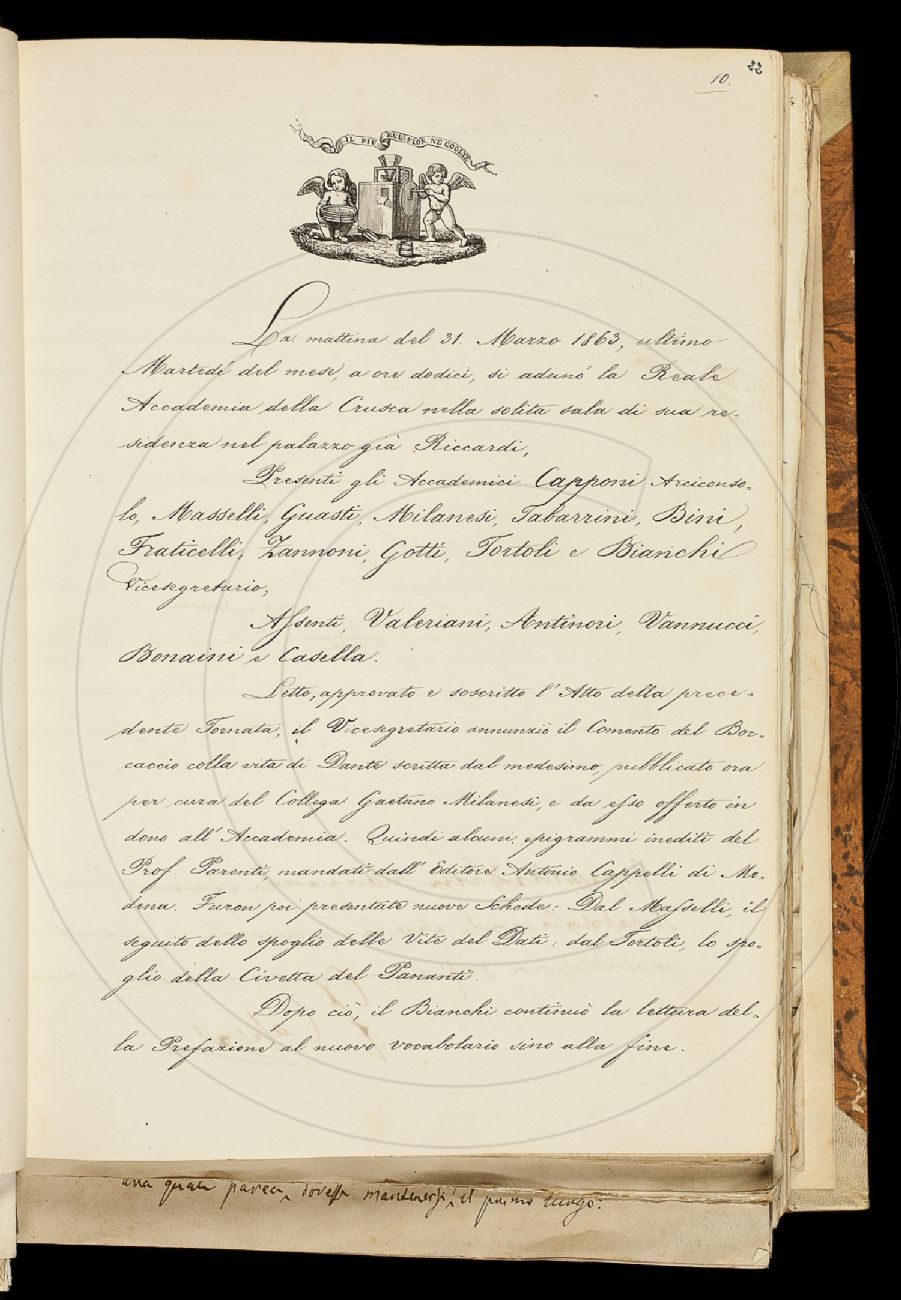 22
10.
IL PIÙ BEL FIOR NE COGLIE
La mattina del 31. Marzo 1863, ultimo
Martedì del mese, a ore dodici, si adunò la Reale
Accademia della Crusca nella solita sala di sua re-
sidenza nel palazzo già Riccardi,
Presenti gli Accademici Capponi Arciconso-
lo, Masselli, Guasti, Milanesi, Tabarrini, Bini,
Fraticelli, Zannoni, Gotti, Tortoli e Bianchi
Vicesegretario,
Assenti, Valeriani, Antinori, Vannucci,
Bonaini e Casella.
Letto, approvato e soscritto l'Atto della prece-
dente Tornata, il Vicesegretario annunziò il Comento del Boc-
caccio colla vita di Dante scritta dal medesimo, pubblicato ora
per cura del Collega Gaetano Milanesi, e da esso offerto in
dono all'Accademia. Quindi alcuni epigrammi inediti del
Prof. Parenti, mandati dall'Editore Antonio Cappelli di Mo-
dena. Furon poi presentate nuove Schede: Dal Masselli, il
seguito dello spoglio delle Vite del Dati: dal Tortoli, lo spo-
glio della Civetta del Pananti.
Dopo ciò, il Bianchi continuò la lettura del-
la Prefazione al nuovo vocabolario sino alla fine.
parea dovesse mantenersi il primo luogo.